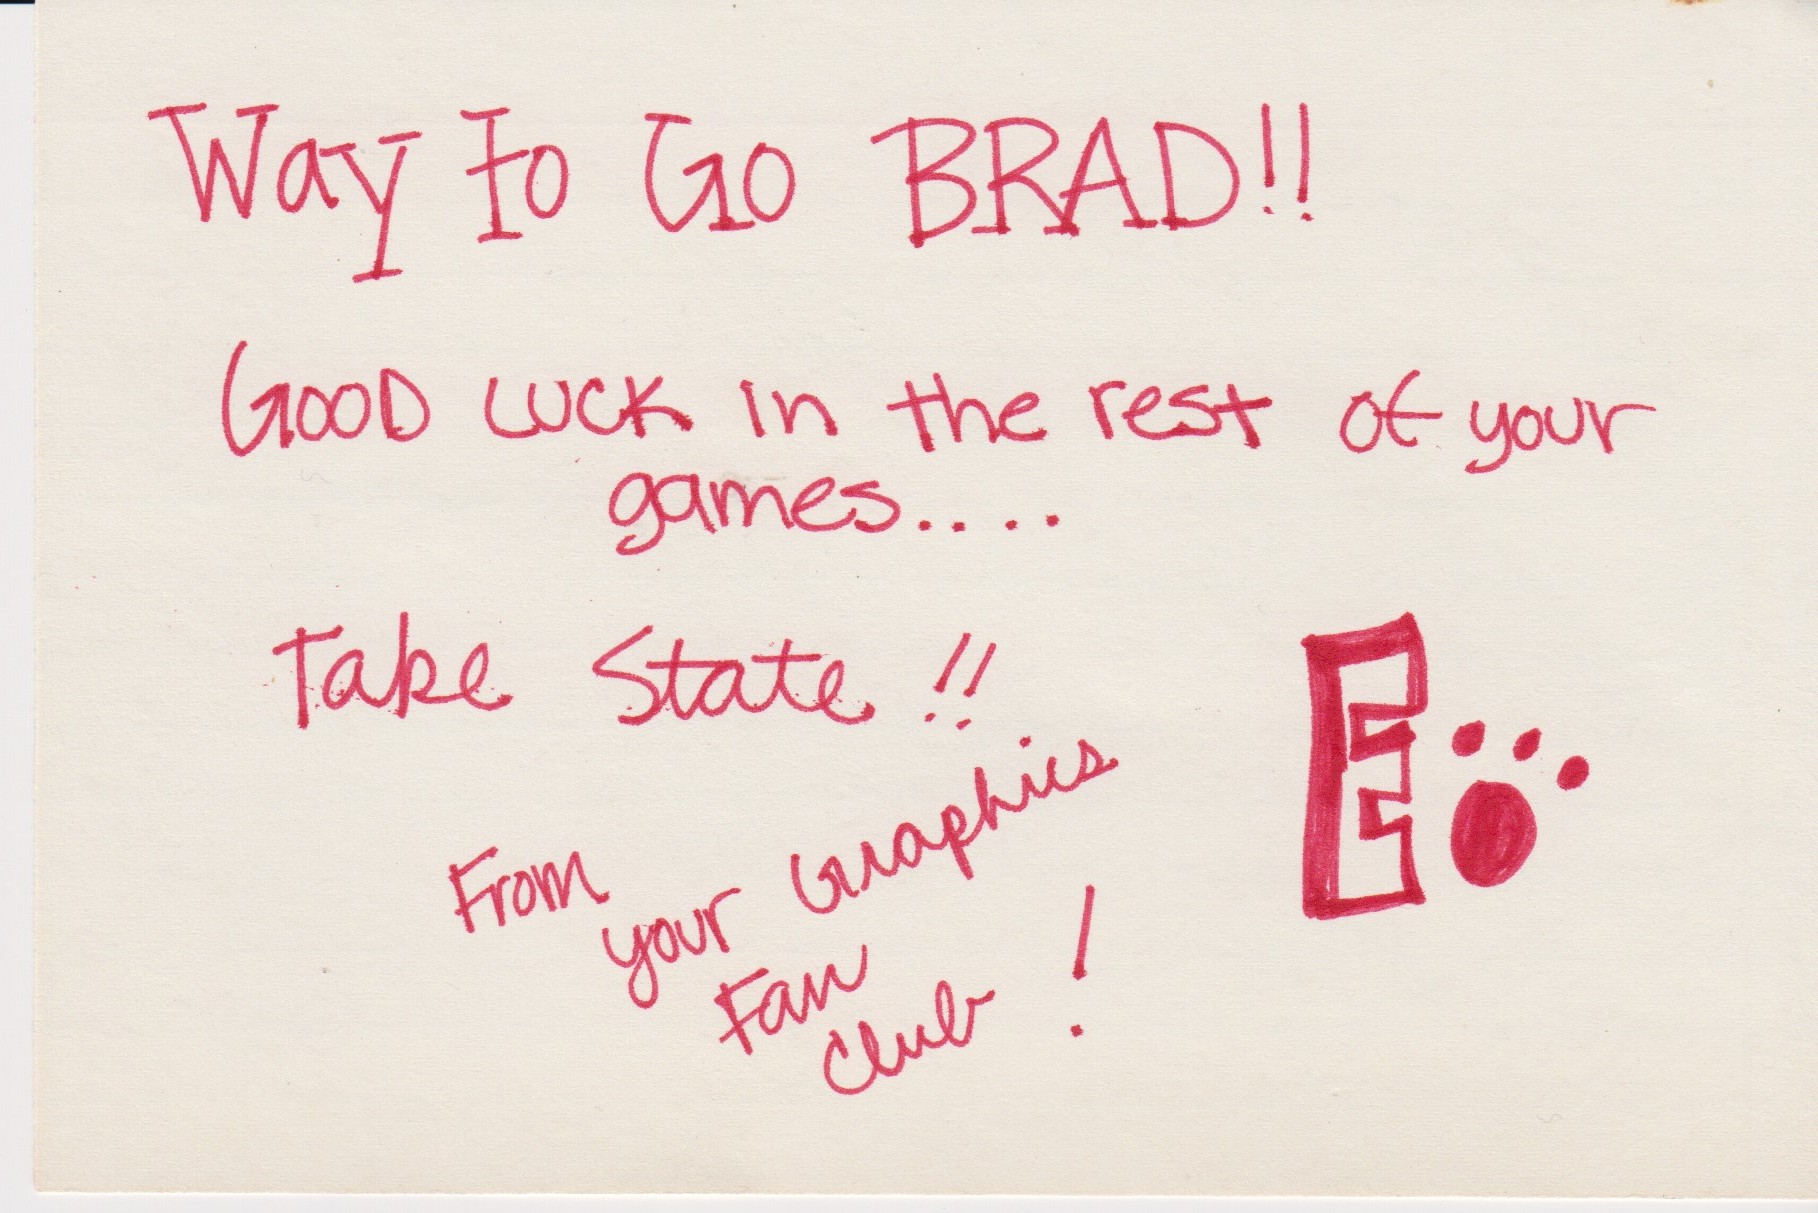 Way To Go BRAD!!
GOOD LUCK in the rest of your
games....
Take State!!
From
your Graphics
Fan
Club!
E